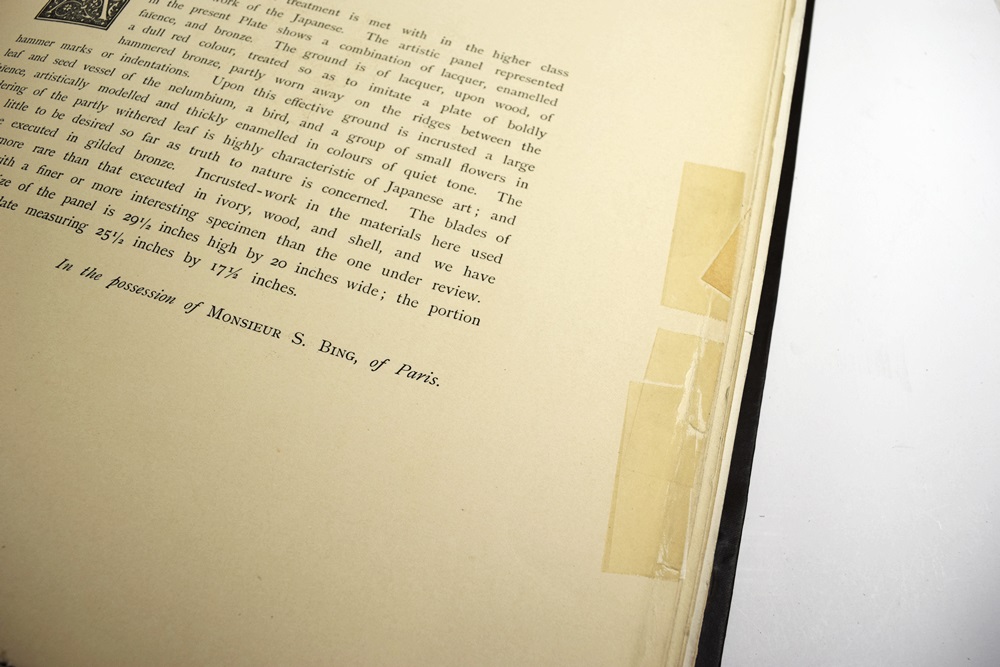 treatment is met with in the higher class
work of the Japanese. The artistic panel represented
in the present Plate shows a combination of lacquer, enamelled
faïence, and bronze. The ground is of lacquer, upon wood, of
a dull red colour, treated so as to imitate a plate of boldly
hammered bronze, partly worn away on the ridges between the
hammer marks or indentations. Upon this effective ground is incrusted a large
leaf and seed vessel of the nelumbium, a bird, and a group of small flowers in
artistically modelled and thickly enamelled in colours of quiet tone. The
of the partly withered leaf is highly characteristic of Japanese art; and
little to be desired so far as truth to nature is concerned. The blades of
executed in gilded bronze. Incrusted-work in the materials here used
more rare than that executed in ivory, wood, and shell, and we have
with a finer or more interesting specimen than the one under review.
of the panel is 29½ inches high by 20 inches wide; the portion
measuring 25½ inches by 17½ inches.
In the possession of MONSIEUR S. BING, of Paris.